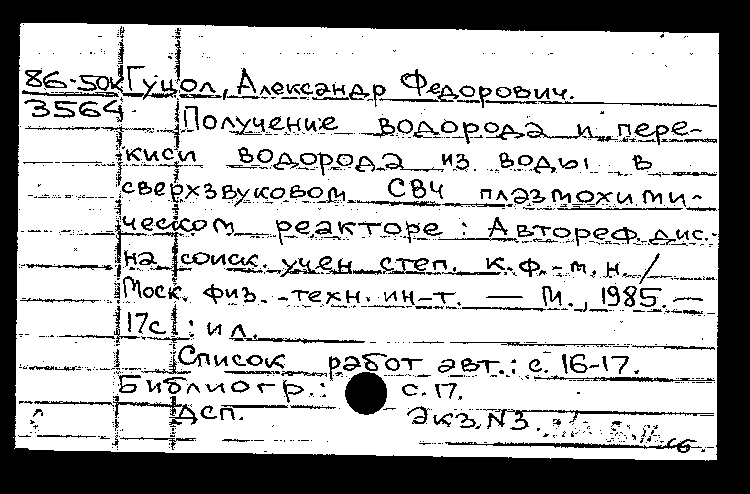 86-50к Гуцол, Александр Федорович.
3564
Получение водорода и пере-
киси водорода из воды в
сверхзвуковом СВЧ плазмохими-
ческом реакторе : Автореф. дис.
на соиск. учен. степ. к.ф.-м.н. /
Моск. физ.-техн. ин-т. — М., 1985. —
17с. : ил.
Список работ авт.: с. 16-17.
Библиогр.: с. 17.
ДСП. Экз. N 3.